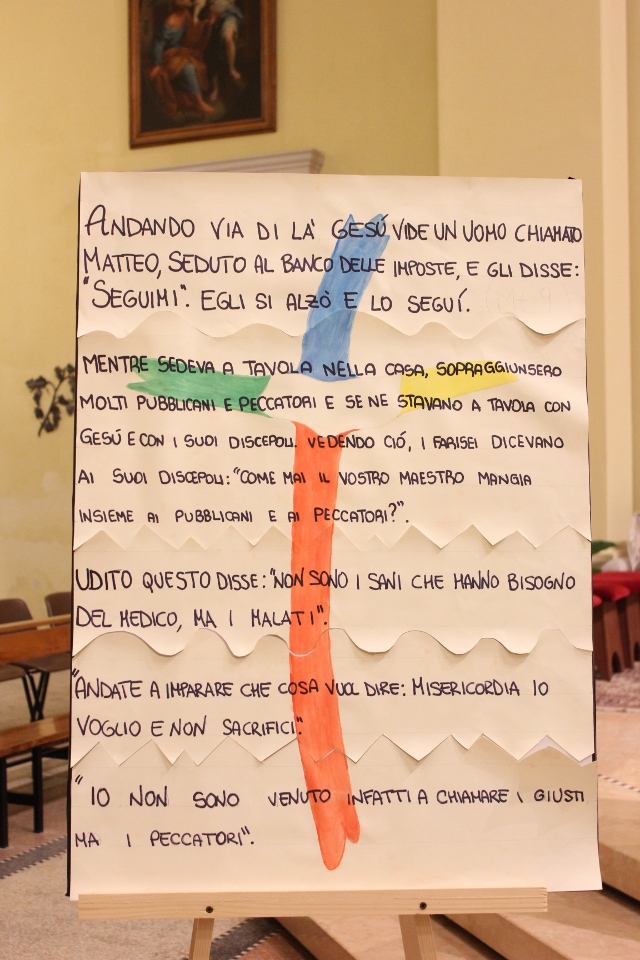 ANDANDO VIA DI LA' GESÚ VIDE UN UOMO CHIAMATO
MATTEO, SEDUTO AL BANCO DELLE IMPOSTE, E GLI DISSE:
"SEGUIMI". EGLI SI ALZÒ E LO SEGUÍ.
MENTRE SEDEVA A TAVOLA NELLA CASA, SOPRAGGIUNSERO
MOLTI PUBBLICANI E PECCATORI E SE NE STAVANO A TAVOLA CON
GESÚ E CON I SUOI DISCEPOLI. VEDENDO CIÓ, I FARISEI DICEVANO
AI SUOI DISCEPOLI: "COME MAI IL VOSTRO MAESTRO MANGIA
INSIEME AI PUBBLICANI E AI PECCATORI?".
UDITO QUESTO DISSE: "NON SONO I SANI CHE HANNO BISOGNO
DEL MEDICO, MA I MALATI".
"ANDATE A IMPARARE CHE COSA VUOL DIRE: MISERICORDIA IO
VOGLIO E NON SACRIFICI."
"IO NON SONO VENUTO INFATTI A CHIAMARE I GIUSTI
MA I PECCATORI".